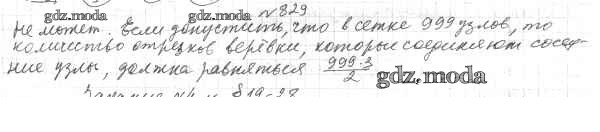 № 829
gdz.moda gdz.moda
не может. Если допустить, что в сетке 999 узлов, то
количество отрезков верёвки, которые соединяют сосед-
ние узлы, должна равняться 999·3/2
gdz.moda